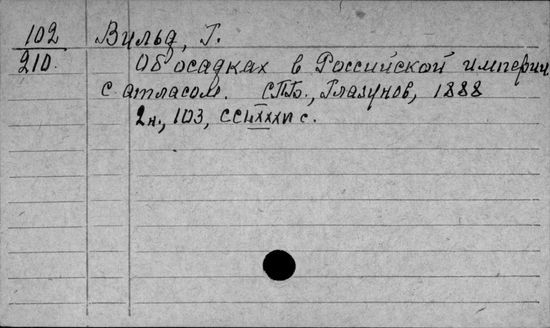 102 Вильд, Г.
210. Об осадках в Российской империи
с атласом. СПб., Глазунов, 1888
2н., 103, с.